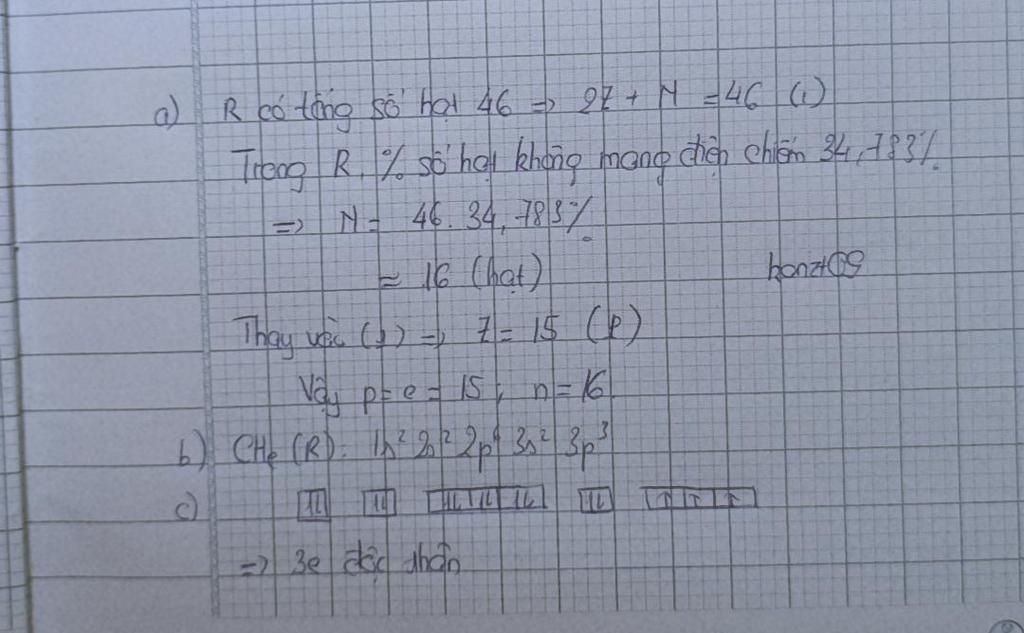 a) R có tổng số hạt 46 => 2Z + N = 46 (1)
Trong R, % số hạt không mang điện chiếm 34,783%
=> N = 46. 34,783%
≈ 16 (hạt)
Thay vào (1) => Z = 15 (P)
Vậy p = e = 15, n = 16
b) CHe (R): 1s² 2s² 2p⁶ 3s² 3p³
c) ↑↓ ↑↓ ↑↓ ↑↓ ↑↓ ↑↓ ↑ ↑ ↑
=> 3e độc thân